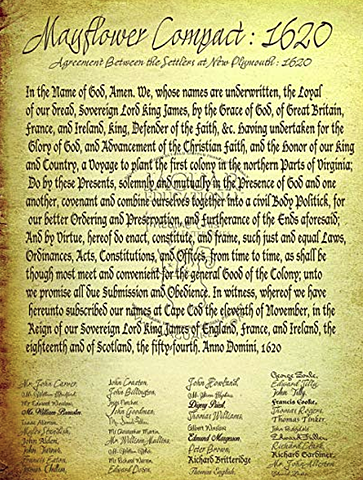 Mayflower Compact : 1620
Agreement Between the Settlers at New Plymouth : 1620
In the Name of God, Amen. We, whose names are underwritten, the Loyal
of our dread, Sovereign Lord King James, by the Grace of God, of Great Britain,
France, and Ireland, King, Defender of the Faith, &c. Having undertaken for the
Glory of God, and Advancement of the Christian Faith, and the Honor of our King
and Country, a Voyage to plant the first colony in the northern Parts of Virginia;
Do by these Presents, solemnly and mutually in the Presence of God and one
another, covenant and combine ourselves together into a civil Body Politick, for
our better Ordering and Preservation, and Furtherance of the Ends aforesaid;
And by Virtue, hereof do enact, constitute, and frame, such just and equal Laws,
Ordinances, Acts, Constitutions, and Offices, from time to time, as shall be
though most meet and convenient for the general Good of the Colony; unto
we promise all due Submission and Obedience. In witness, whereof we have
hereunto subscribed our names at Cape Cod the eleventh of November, in the
Reign of our Sovereign Lord King James of England, France, and Ireland, the
eighteenth and of Scotland, the fifty-fourth. Anno Domini, 1620
Mr. John Carver,
Mr. William Bradford
Mr. Edward Winslow,
Mr. William Brewster,
Isaac Allerton,
Myles Standish,
John Alden,
John Turner,
Francis Eaton,
James Chilton,
John Craxton,
John Billington,
John Goodman,
Mr. Christopher Martin,
Mr. William Mullins,
Mr. Richard Warren,
Edward Doten,
Digery Priest
Thomas Williams,
Gilbert Winslow,
Edmund Margeson,
Peter Brown,
Richard Britteridge
Thomas English,
George Soule,
Edward Tilly,
John Tilly,
Francis Cooke,
Thomas Rogers,
Thomas Tinker,
John Ridgdale
Edward Fuller,
Richard Clark,
Richard Gardiner,
Mr. John Allerton,